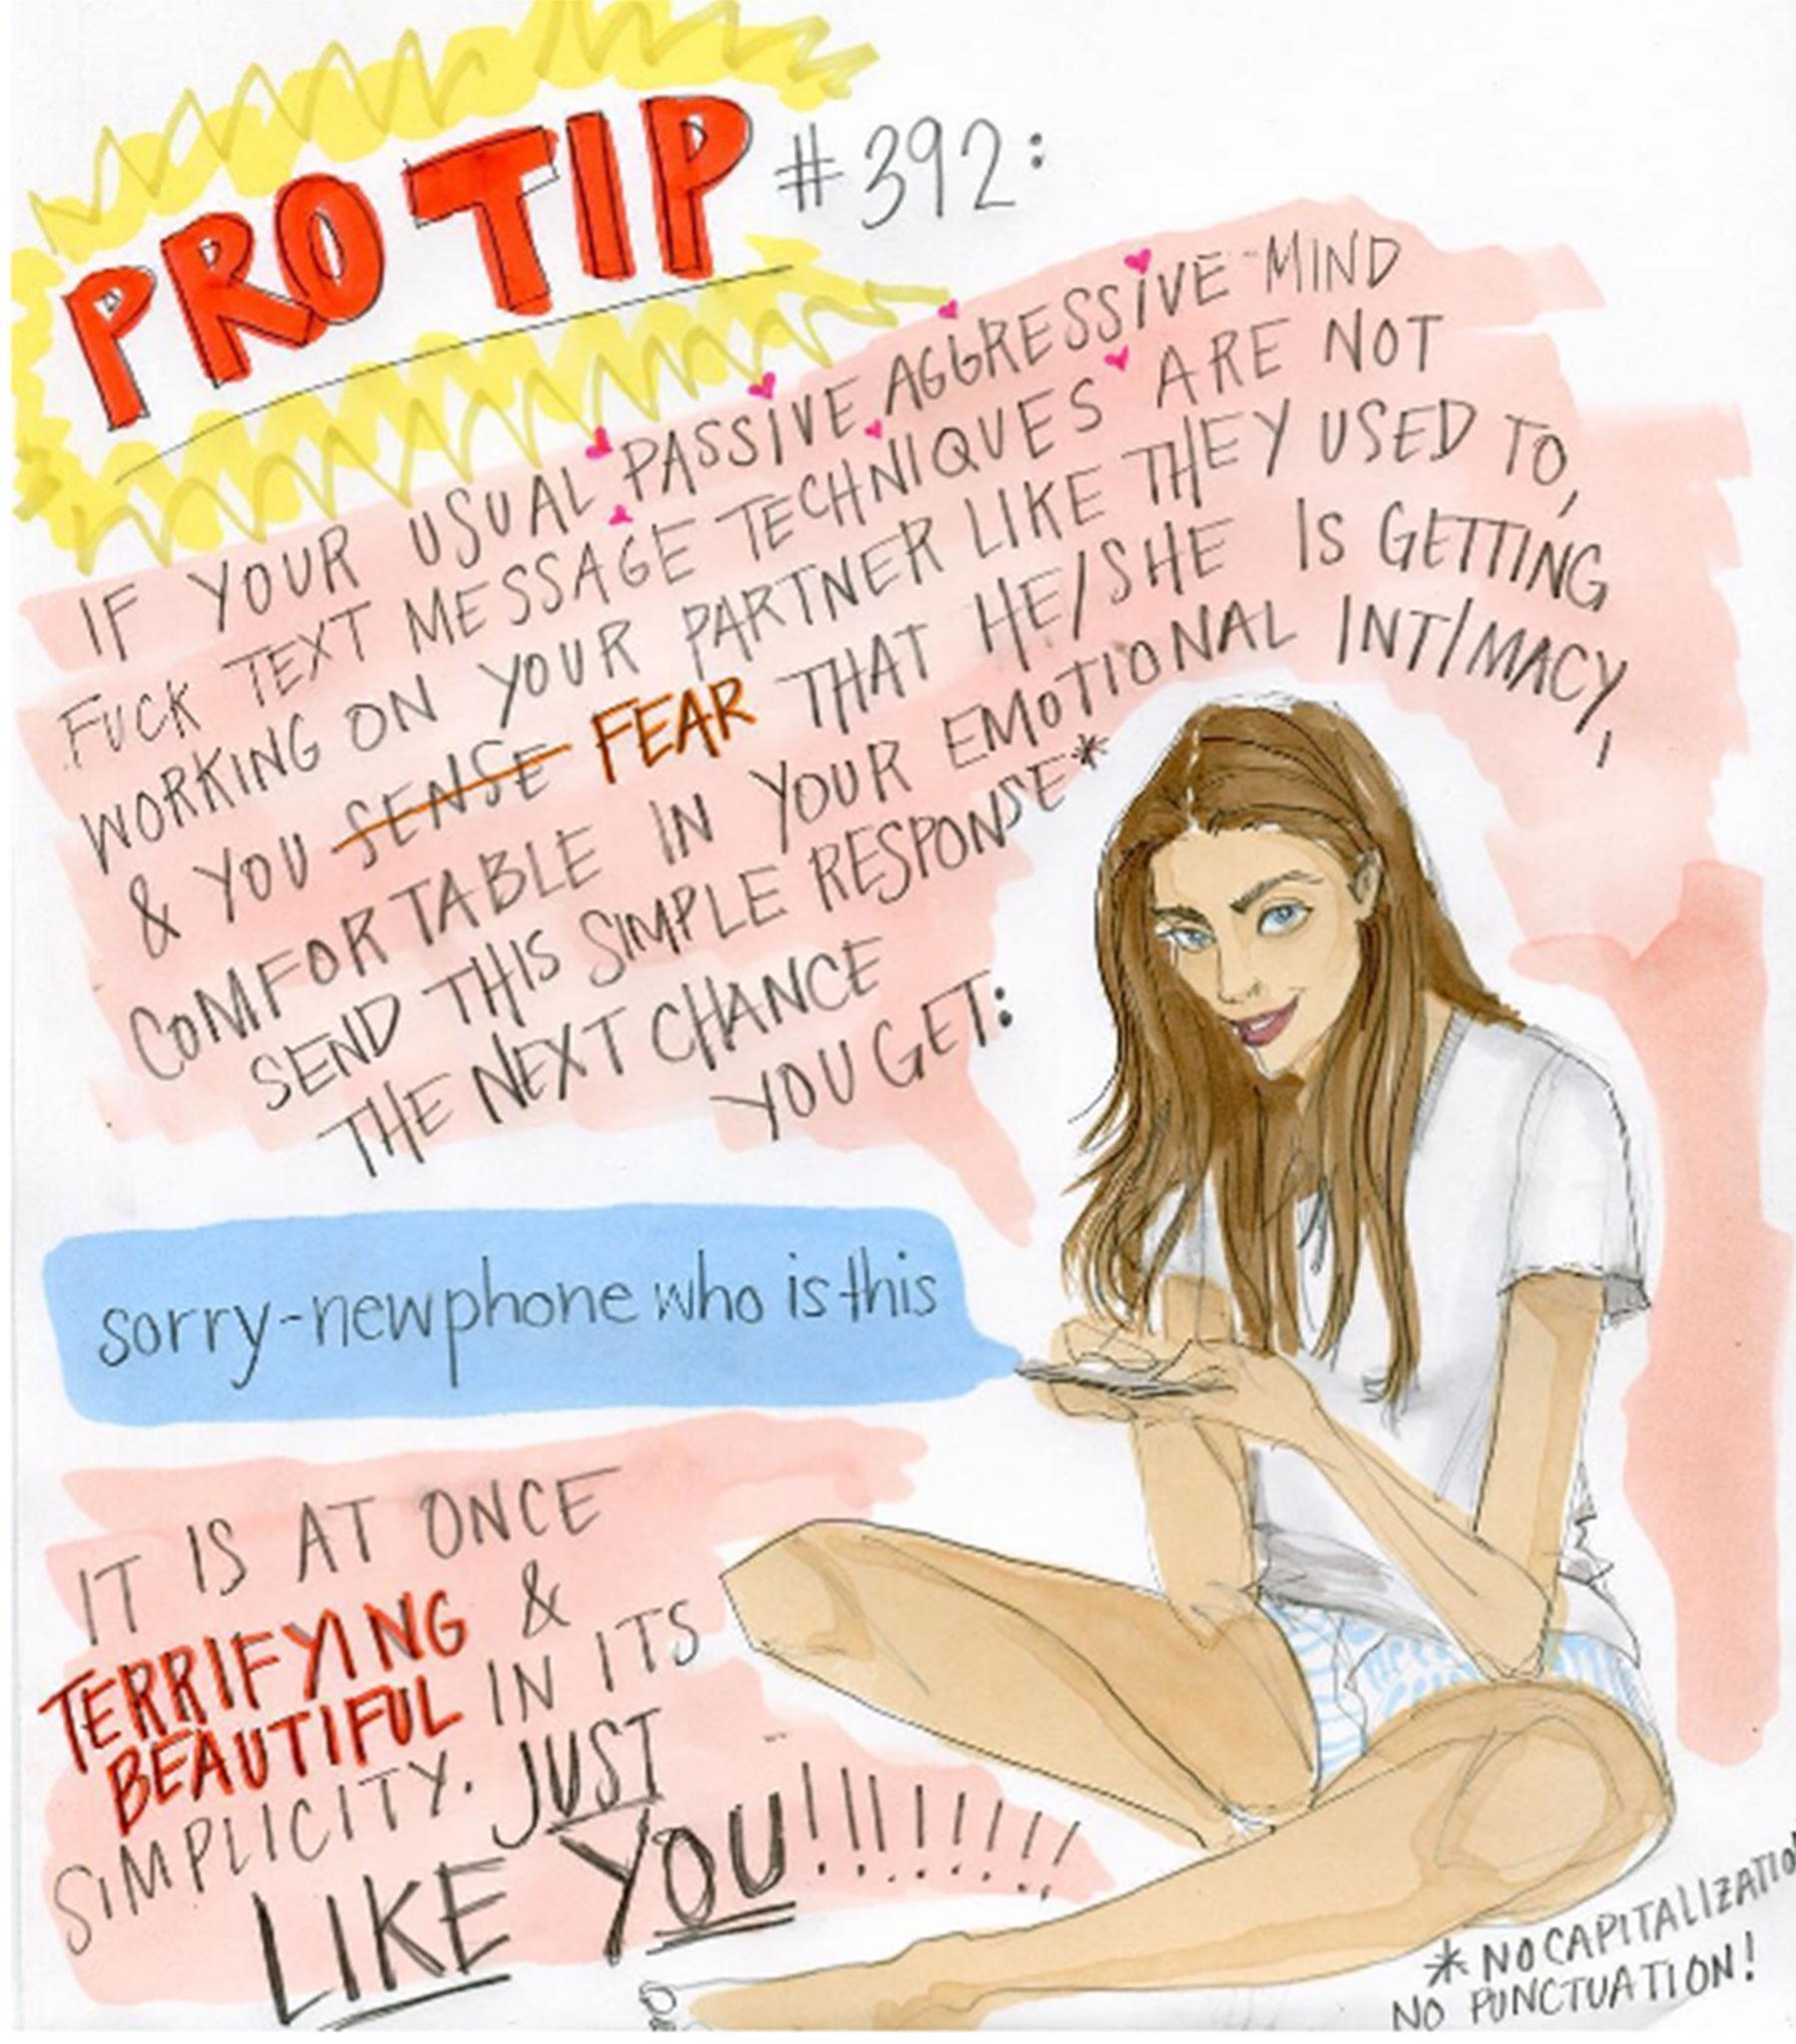 PRO TIP #392:
IF YOUR USUAL PASSIVE AGGRESSIVE-MIND
FUCK TEXT MESSAGE TECHNIQUES ARE NOT
WORKING ON YOUR PARTNER LIKE THEY USED TO,
& YOU SENSE FEAR THAT HE/SHE IS GETTING
COMFORTABLE IN YOUR EMOTIONAL INTIMACY,
SEND THIS SIMPLE RESPONSE*
THE NEXT CHANCE
YOU GET:
sorry-new phone who is this
IT IS AT ONCE
TERRIFYING &
BEAUTIFUL IN ITS
SIMPLICITY. JUST
LIKE YOU!!!!!!!!!!
* NO CAPITALIZATIO
NO PUNCTUATION!